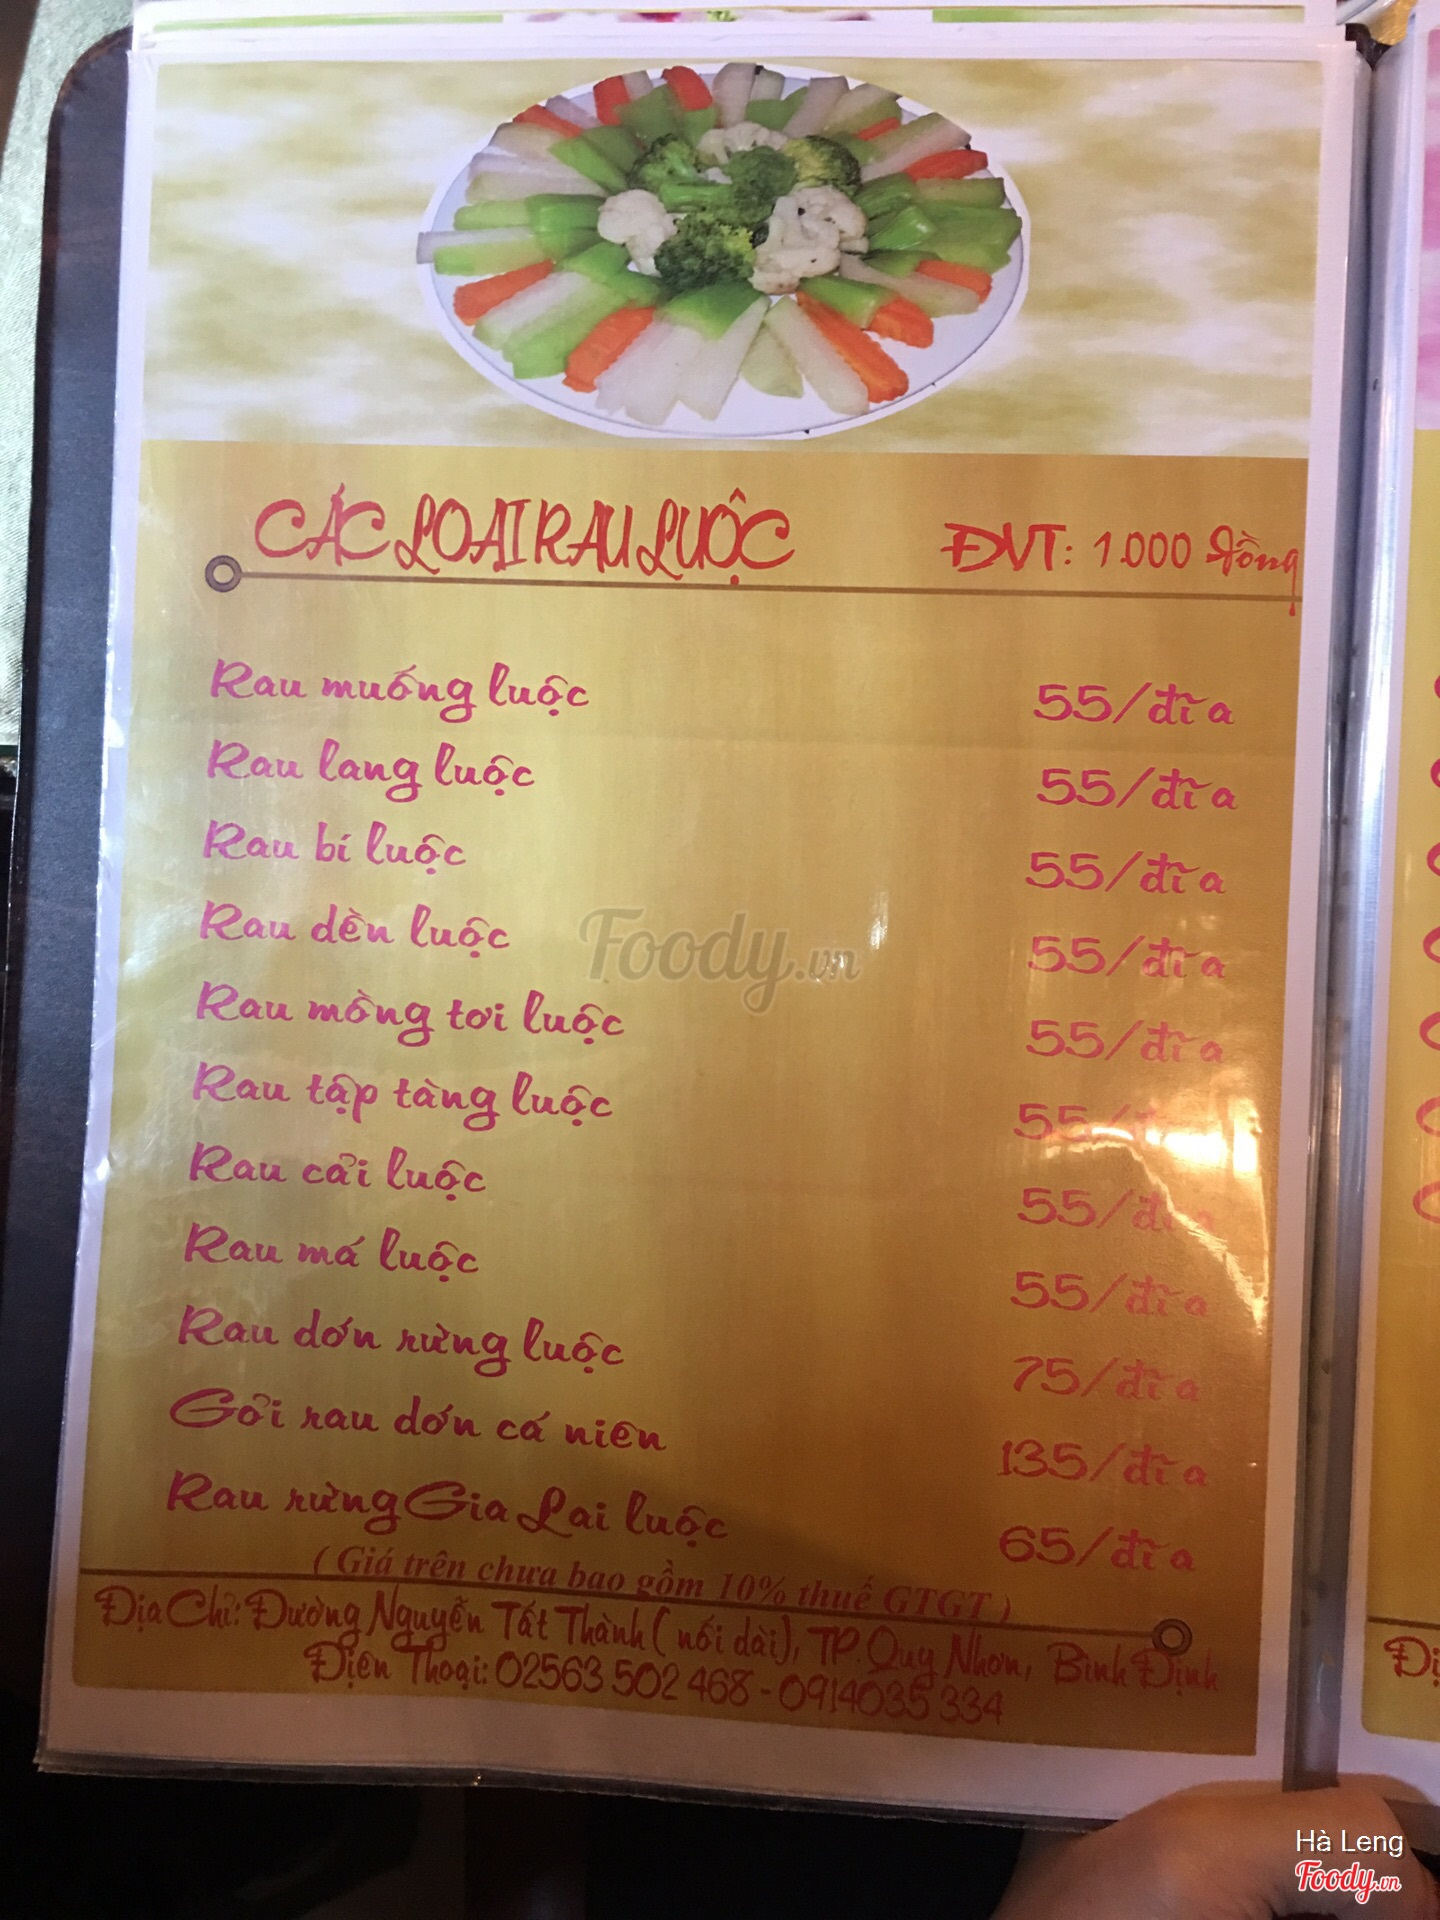 CÁC LOẠI RAU LUỘC ĐVT: 1.000 đồng
Rau muống luộc 55/đĩa
Rau lang luộc 55/đĩa
Rau bí luộc 55/đĩa
Rau dền luộc 55/đĩa
Foody.vn
Rau mồng tơi luộc 55/đĩa
Rau tập tàng luộc 55/đĩa
Rau cải luộc 55/đĩa
Rau má luộc 55/đĩa
Rau dớn rừng luộc 75/đĩa
Gỏi rau dớn cá niên 135/đĩa
Rau rừng Gia Lai luộc 65/đĩa
( Giá trên chưa bao gồm 10% thuế GTGT )
Địa Chỉ: Đường Nguyễn Tất Thành ( nối dài), TP. Quy Nhơn, Bình Định
Điện Thoại: 02563 502 468 - 0914035 334
Hà Leng
Foody.vn